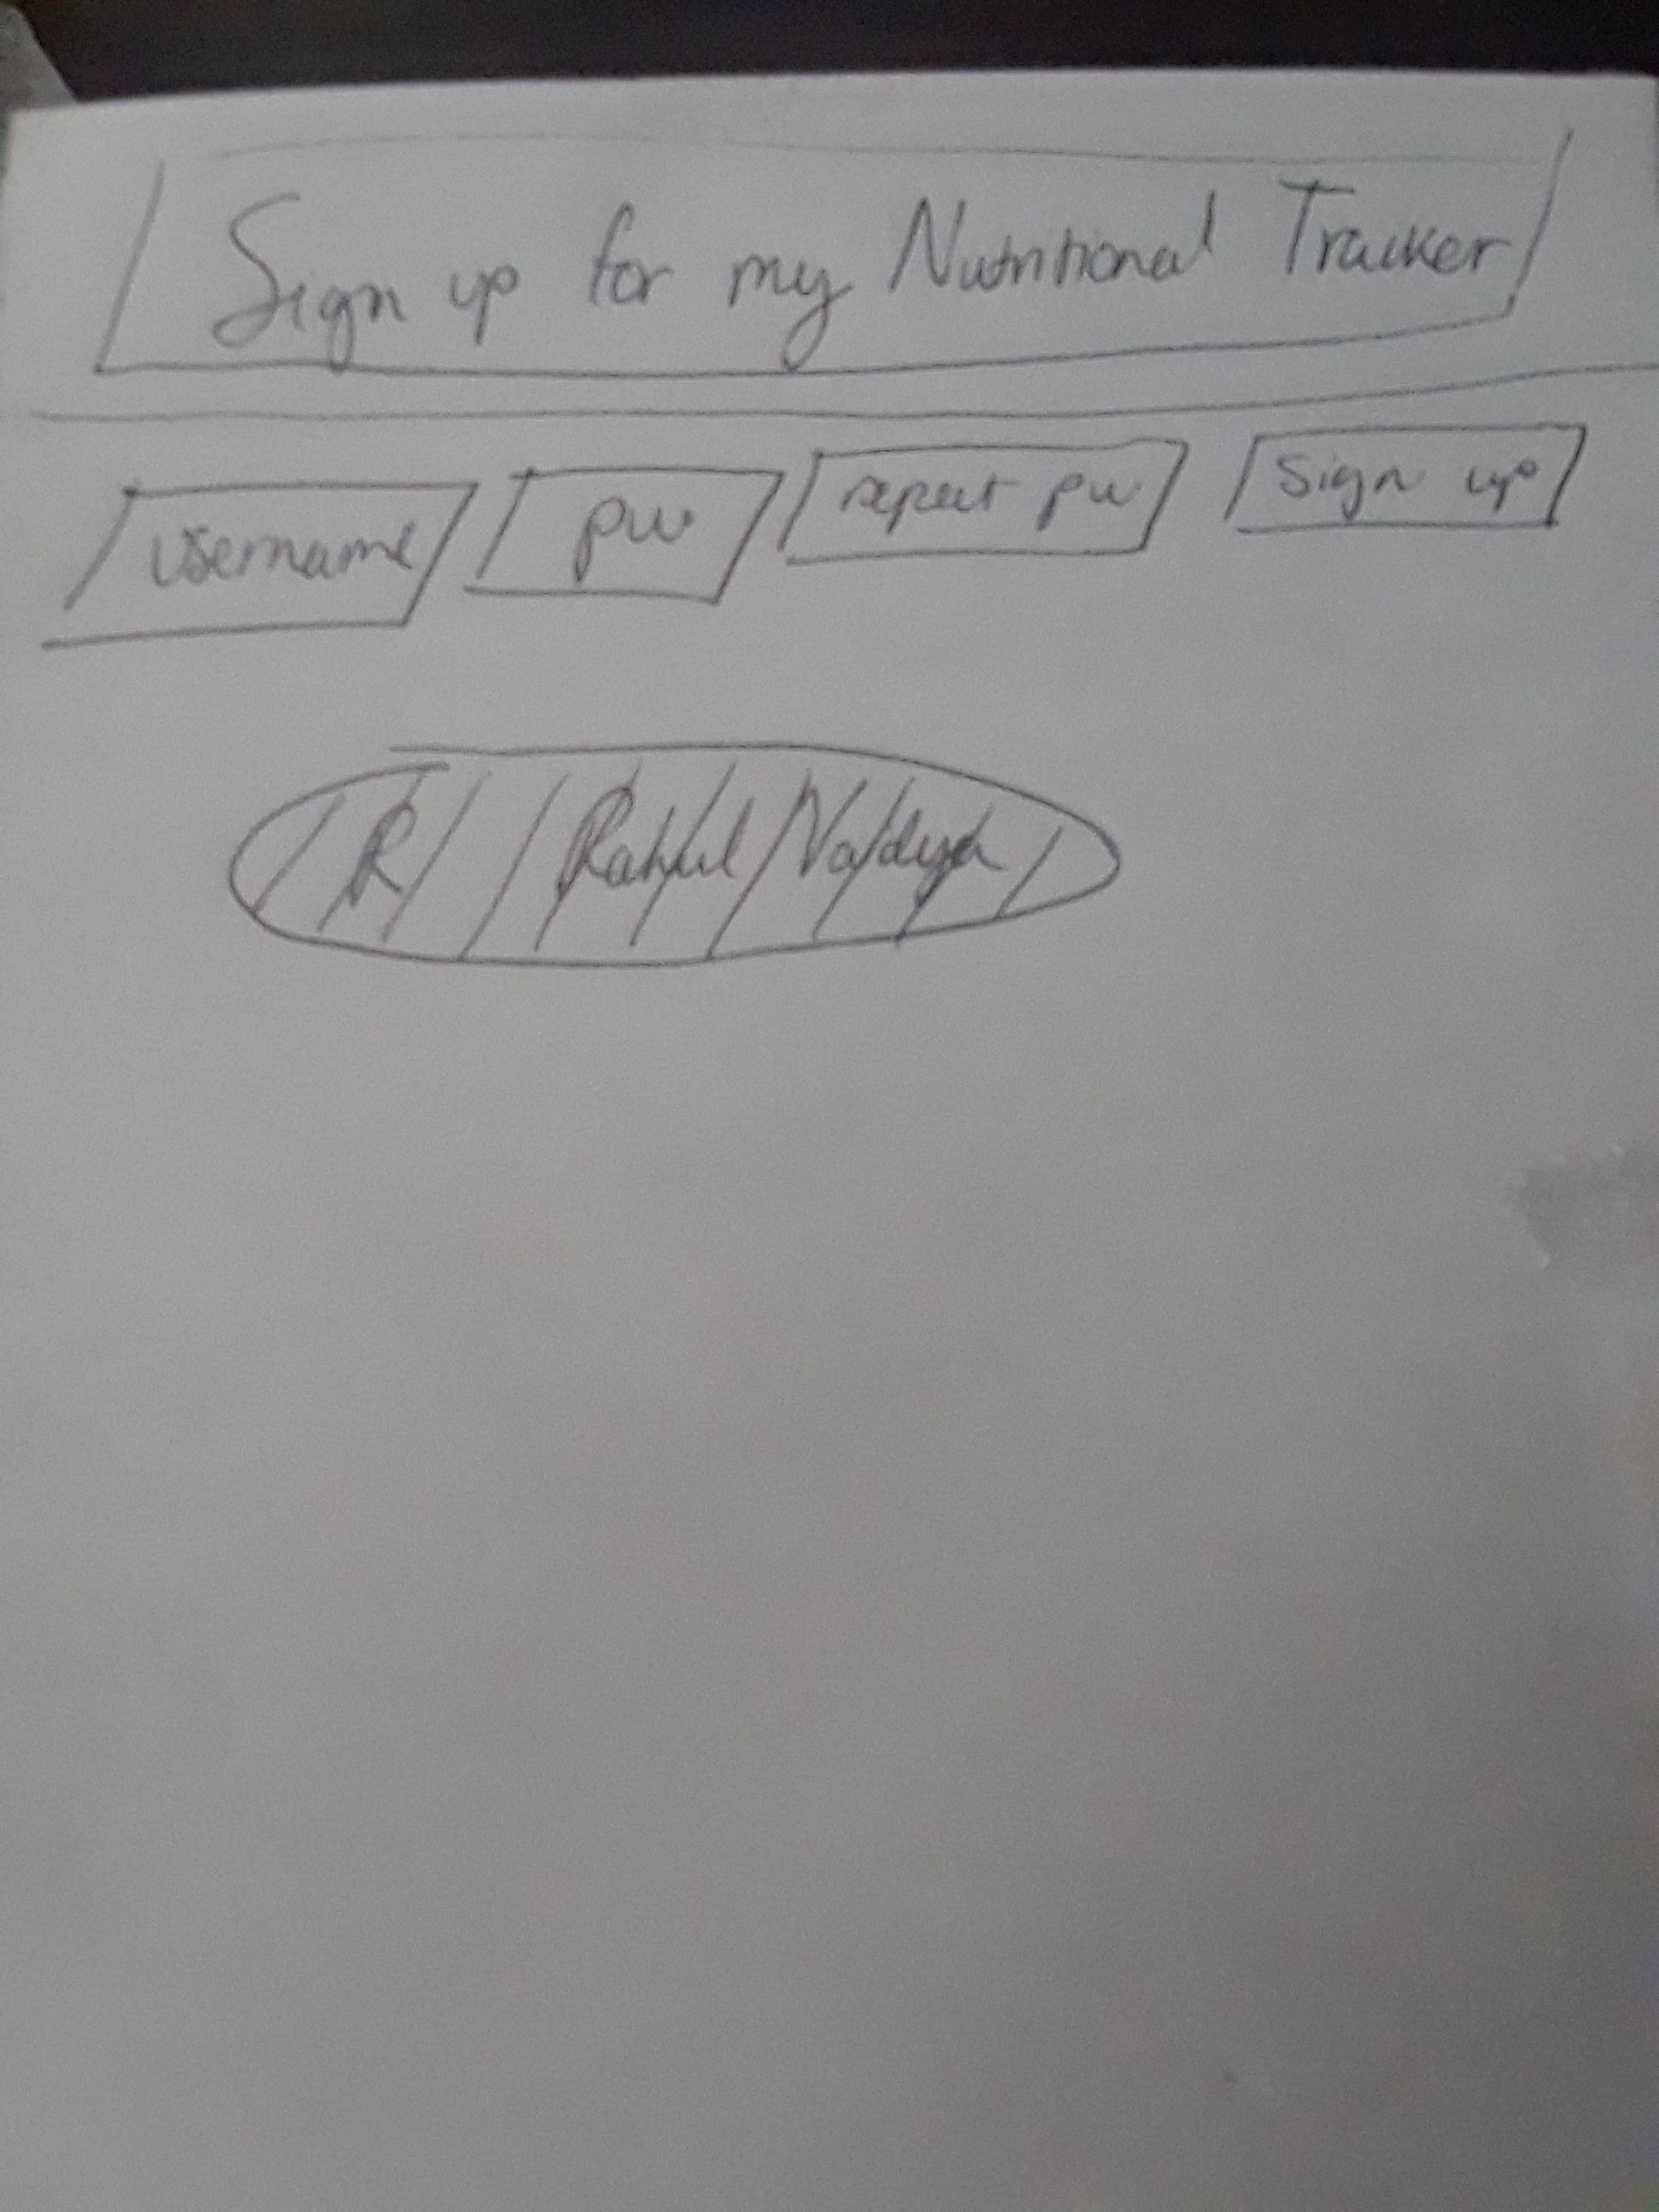 Sign up for my Nutritional Tracker
username pw repeat pw Sign up
R Rahul Vaidya